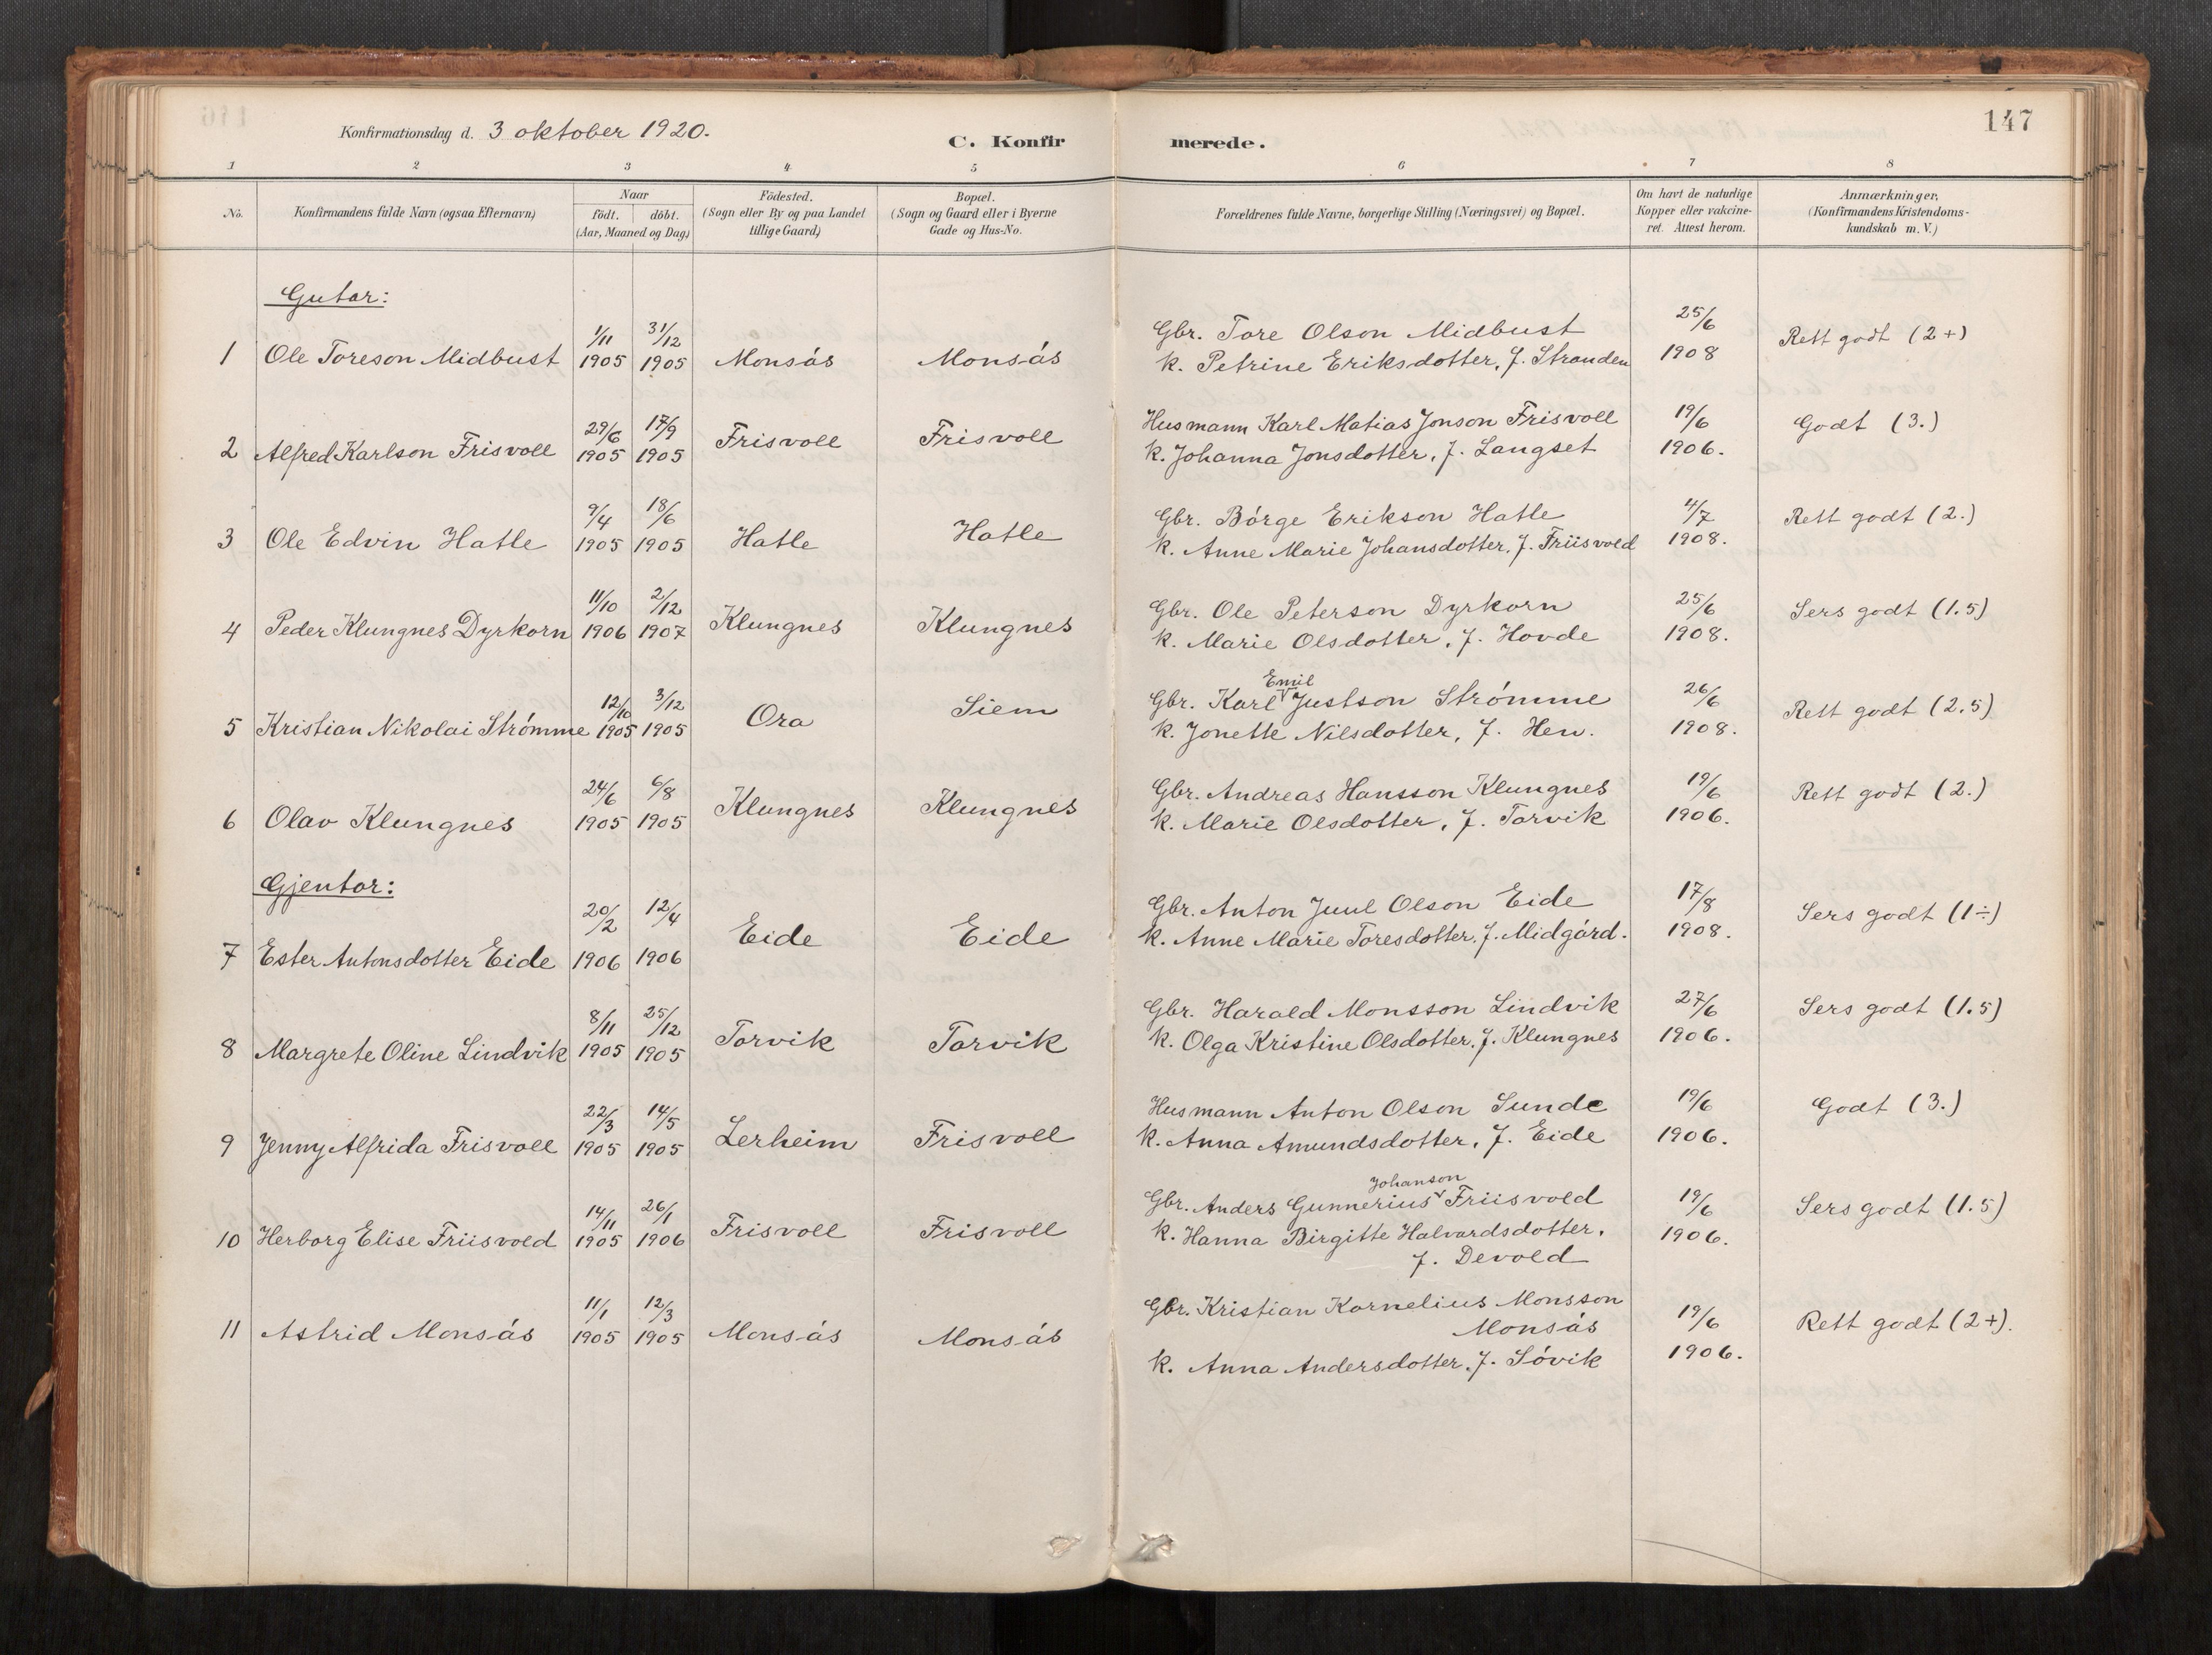 147
Konfirmationsdag d. 3 oktober 1920.
C. Konfirmerede.
1 2 3 4 5 6 7 8
No.
Konfirmandens fulde Navn (ogsaa Efternavn)
Naar
födt. döbt.
(Aar, Maaned og Dag)
Födested.
(Sogn eller By og paa Landet
tillige Gaard)
Bopæl.
(Sogn og Gaard eller i Byerne
Gade og Hus-No.
Forældrenes fulde Navne, borgerlige Stilling (Næringsvei) og Bopæl.
Om havt de naturlige
Kopper eller vakcine-
ret. Attest herom.
Anmærkninger,
(Konfirmandens Kristendoms-
kundskab m. V.)
Gutar:
1 Ole Toreson Midbust 1/11 1905 31/12 1905 Monsás Monsás
Gbr. Tore Olson Midbust
k. Petrine Eriksdotter, f. Stranden
25/6 1908 Rett godt (2+)
2 Alfred Karlson Frisvoll 29/6 1905 17/9 1905 Frisvoll Frisvoll
Husmann Karl Matias Jonson Frisvoll
k. Johanna Jonsdotter, f. Langset
19/6 1906. Godt (3.)
3 Ole Edvin Hatle 9/4 1905 18/6 1905 Hatle Hatle
Gbr. Börge Erikson Hatle
k. Anne Marie Johansdotter, f. Friisvold
4/7 1908. Rett godt (2.)
4 Peder Klungnes Dyrkorn 11/10 1906 2/12 1907 Klungnes Klungnes
Gbr. Ole Peterson Dyrkorn
k. Marie Olsdotter, f. Hovde
25/6 1908. Sers godt (1.5)
5 Kristian Nikolai Strömme 12/10 1905 3/12 1905 Ora Siem
Gbr. Karl Emil Justson Strömme
k. Jonette Nilsdotter, f. Hen.
26/6 1908. Rett godt (2.5)
6 Olav Klungnes 24/6 1905 6/8 1905 Klungnes Klungnes
Gbr. Andreas Hansson Klungnes
k. Marie Olsdotter, f. Torvik
19/6 1906. Rett godt (2.)
Gjentor:
7 Ester Antonsdotter Eide 20/2 1906 12/4 1906 Eide Eide
Gbr. Anton Juul Olson Eide
k. Anne Marie Toresdotter, f. Midgárd.
17/8 1908. Sers godt (1÷)
8 Margrete Oline Lindvik 8/11 1905 25/12 1905 Torvik Torvik
Gbr. Harald Monsson Lindvik
k. Olga Kristine Olsdotter, f. Klungnes
27/6 1906. Sers godt (1.5)
9 Jenny Alfrida Frisvoll 22/3 1905 14/5 1905 Lerheim Frisvoll
Husmann Anton Olson Sunde
k. Anna Amundsdotter, f. Eide
19/6 1906. Godt (3.)
10 Herborg Elise Friisvold 14/11 1905 26/1 1906 Frisvoll Frisvoll
Gbr. Anders Gunnerius Johanson Friisvold
k. Hanna Birgitte Halvardsdotter,
f. Devold
19/6 1906. Sers godt (1.5)
11 Astrid Monsás 11/1 1905 12/3 1905 Monsás Monsás
Gbr. Kristian Kornelius Monsson
Monsás
k. Anna Andersdotter, f. Sövik
19/6 1906. Rett godt (2+).